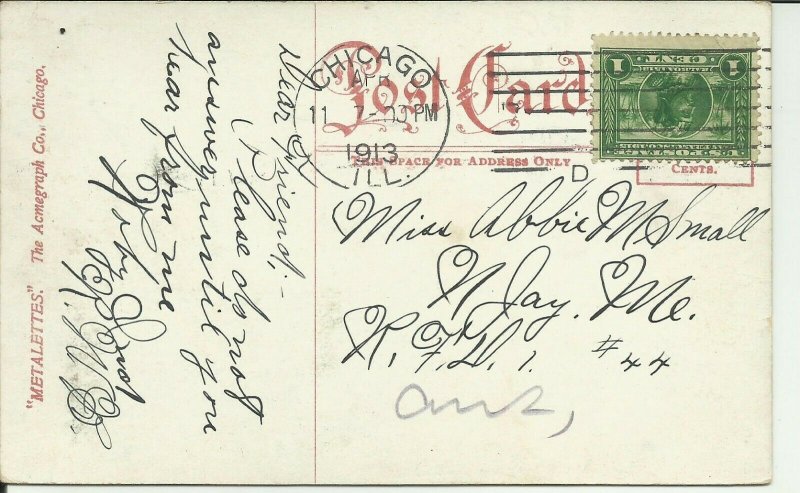 "METALETTES." The Acmegraph Co., Chicago.
Post Card
THIS SPACE FOR ADDRESS ONLY
CENTS.
CHICAGO
APR
11 7-30 PM
1913
ILL.
D
1 CENT 1
Dear Friend;-
Please do not
answer until you
hear from me
Miss Abbie M Small
N Jay. Me.
R. F. D. 1. #44